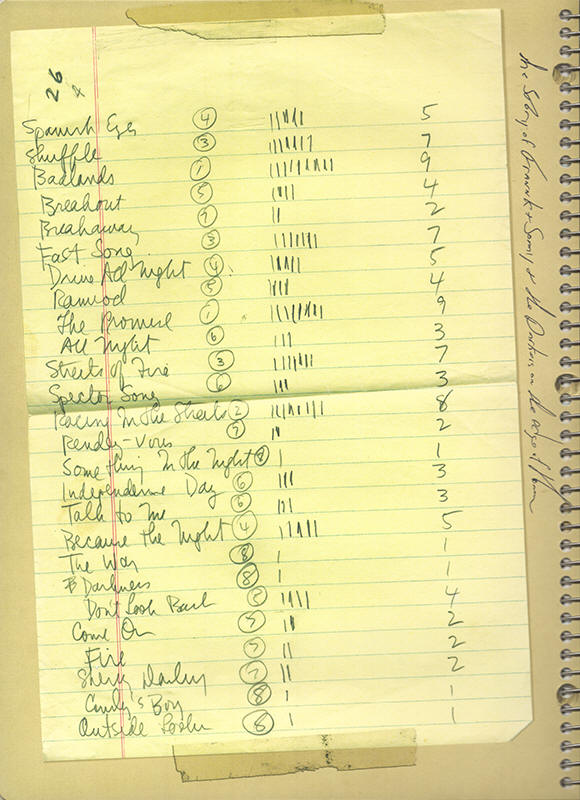 26
Spanish Eyes 4 ||||| 5
Shuffle 3 ||||||| 7
Badlands 1 ||||||||| 9
Breakout 5 |||| 4
Breakaway 7 || 2
Fast Song 3 ||||||| 7
Drive All Night 4 ||||| 5
Ramrod 5 |||| 4
The Promise 1 ||||||||| 9
All Night 6 ||| 3
Streets of Fire 3 ||||||| 7
Spector Song 6 ||| 3
Racing In the Streets 2 |||||||| 8
Rendez-Vous 7 || 2
Something In the Night 8 | 1
Independence Day 6 ||| 3
Talk to Me 6 ||| 3
Because the Night 4 ||||| 5
The Way 8 | 1
Darkness 8 | 1
Dont Look Back 5 |||| 4
Come On 7 || 2
Fire 7 || 2
Sherry Darling 7 || 2
Candy's Boy 8 | 1
Outside Lookin 8 | 1
the Story of + & the on the edge of